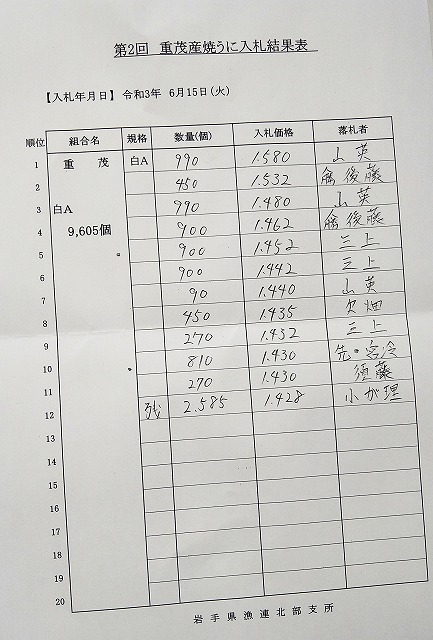 第2回 重茂産焼うに入札結果表
【入札年月日】 令和3年 6月15日(火)
順位 組合名 規格 数量(個) 入札価格 落札者
1 重茂 白A 990 1.580 山英
2 450 1.532 後藤
3 白A 990 1.480 山英
4 9,605個 900 1.462 後藤
5 900 1.452 三上
6 900 1.442 三上
7 90 1.440 山英
8 450 1.435 久畑
9 270 1.432 三上
10 810 1.430 先・宮冷
11 270 1.430 須藤
12 残 2.585 1.428 小が理
13
14
15
16
17
18
19
20
岩手県漁連北部支所